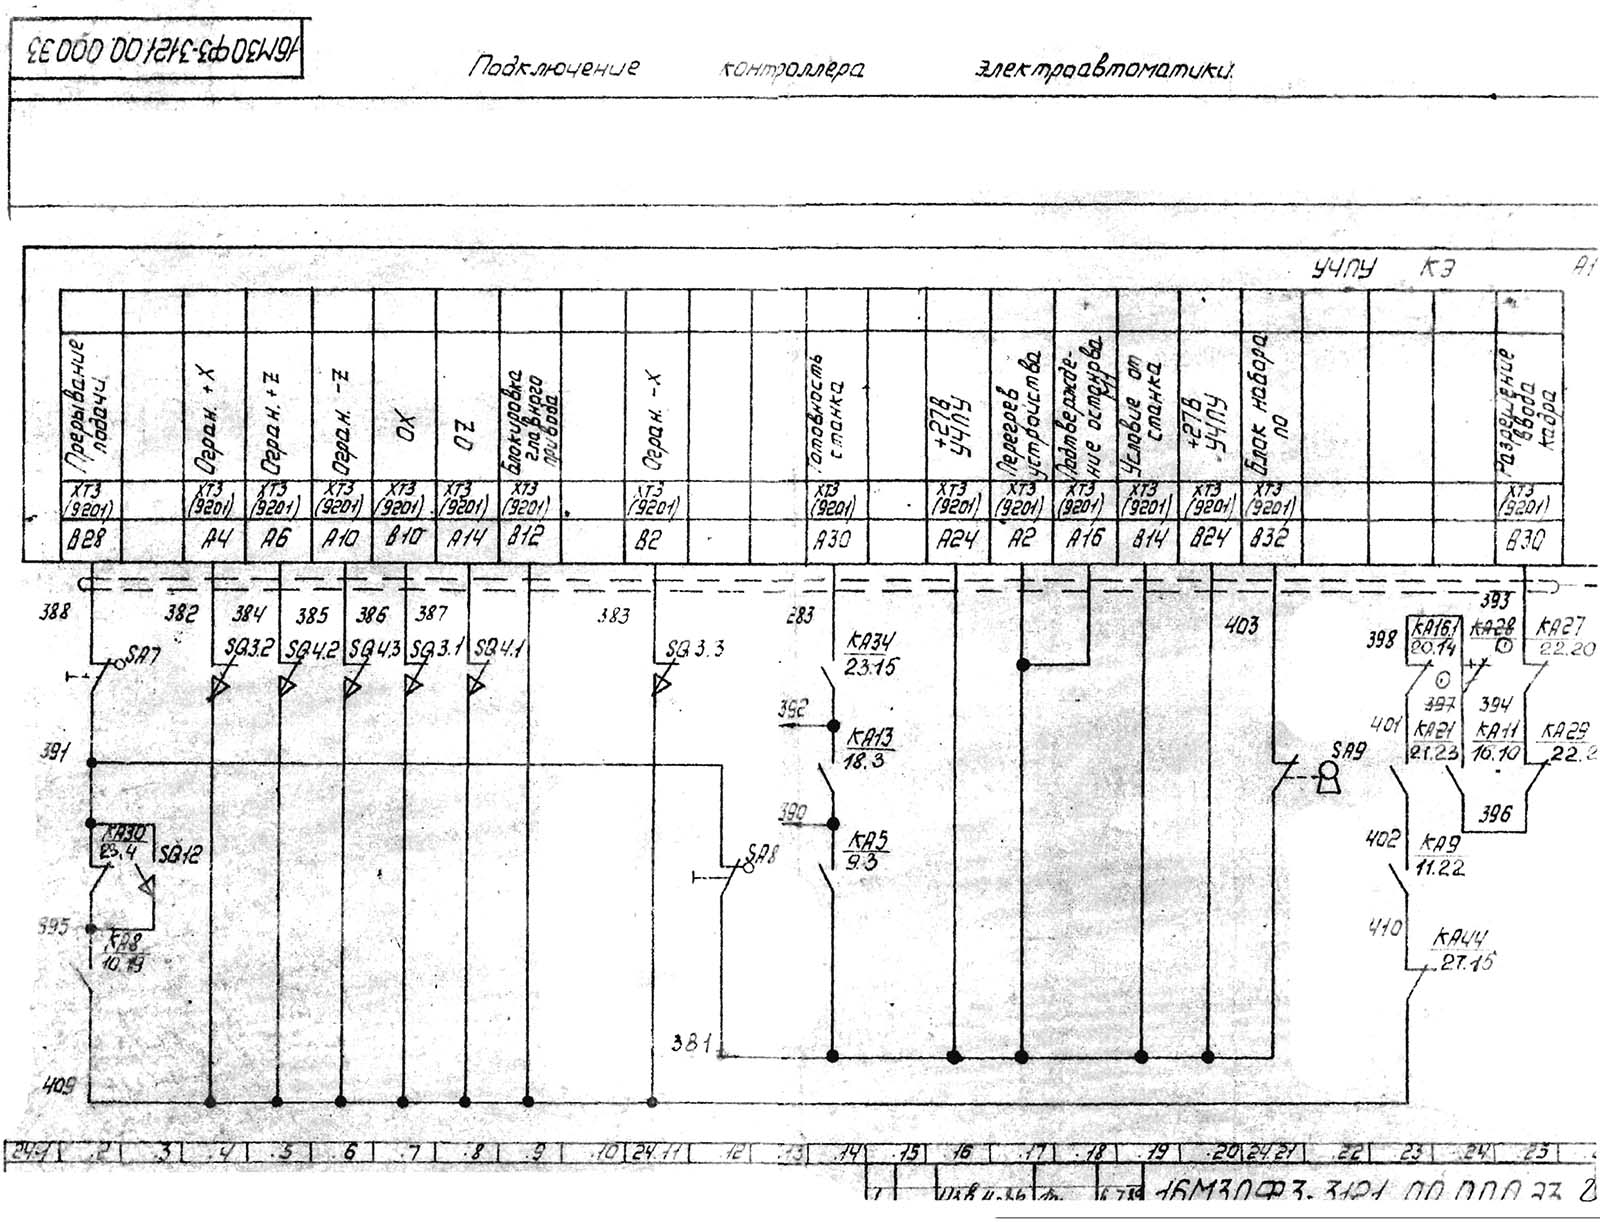 16М30Ф3-3121.00.000 ЭЗ
Подключение контроллера электроавтоматики.
УЧПУ КЭ А1
Прерывание подачи
Огран. +X
Огран. +Z
Огран. -Z
OX
OZ
Блокировка главного привода
Огран. -X
Готовность станка
+27В УЧПУ
Перегрев устройства
Подтвержде-ние останова
Условие от станка
+27В УЧПУ
Блок набора по
Разрешение ввода кадра
ХТЗ ХТЗ ХТЗ ХТЗ ХТЗ ХТЗ ХТЗ ХТЗ ХТЗ ХТЗ ХТЗ ХТЗ ХТЗ ХТЗ ХТЗ ХТЗ
(9201) (9201) (9201) (9201) (9201) (9201) (9201) (9201) (9201) (9201) (9201) (9201) (9201) (9201) (9201) (9201)
В28 А4 А6 А10 В10 А14 В12 В2 А30 А24 А2 А16 В14 В24 В32 В30
388 382 384 385 386 387 383 283 403 398 393
SA7 SQ3.2 SQ4.2 SQ4.3 SQ3.1 SQ4.1 SQ3.3
КА34
23.15
КА16.1
20.14
КА28
КА27
22.20
392
397 394
401
391
КА13
18.3
SA9
КА21
21.23
КА11
16.10
КА29
22.2
390
396
КА30
23.4
SQ12
SA8
КА5
9.3
402
КА9
11.22
395
КА8
10.19
410
КА44
27.15
381
409
24.1 .2 .3 .4 .5 .6 .7 .8 .9 .10 24.11 .12 .13 .14 .15 .16 .17 .18 .19 .20 24.21 .22 .23 .24 .25
16М30Ф3.3121.00.000 ЭЗ